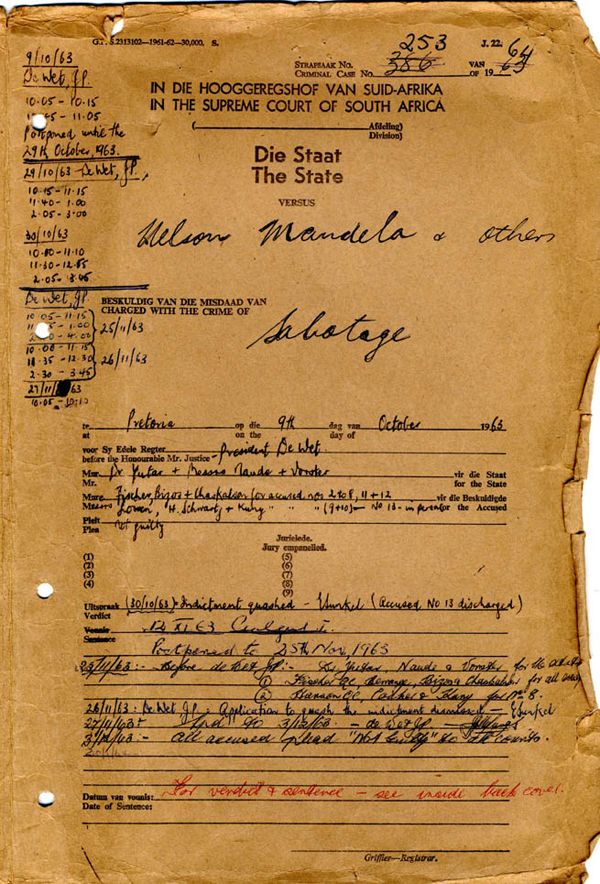 G.P. S.2313102—1961-62—30,000. S.
J. 22.
253 64
STRAFSAAK NO. 386 VAN
CRIMINAL CASE NO. OF 1963
IN DIE HOOGGEREGSHOF VAN SUID-AFRIKA
IN THE SUPREME COURT OF SOUTH AFRICA
( Afdeling)
Division)
Die Staat
The State
VERSUS
Nelson Mandela & others
BESKULDIG VAN DIE MISDAAD VAN
CHARGED WITH THE CRIME OF
Sabotage
9/10/63
De Wet, J.P.
10.05 - 10.15
- 11.05
Postponed until the
29th October, 1963.
29/10/63 De Wet, J.P.,
10.15 - 11.15
11.40 - 1.00
2.05 - 3.00
30/10/63
- 11.10
11.30 -
2.05 -
De Wet, J.P.
10 05 - 11.15
- 1.00 25/11/63
2.00 - 4.00
10.00 - 11.15
- 12.30 26/11/63
2.30 - 3.45
27/11/63
10.05 - 10.10
te Pretoria op die 9th dag van October 1963
at on the day of
voor Sy Edele Regter President De Wet.
before the Honourable Mr. Justice
Mnr. Dr Yutar + Messrs Naude + Vorster vir die Staat
Mr. for the State
Mnre Fischer, Bizos + Chaskalson for accused nos 11 + 12 vir die Beskuldigde
Messrs Lowen, H. Schwartz + Kuny " " " (9+10) - No 13 - in person for the Accused
Pleit Not guilty
Plea
Jurielede.
Jury empanelled.
(1) (5)
(2) (6)
(3) (7)
(4) (8)
(9)
Uitspraak (30/10/63) Indictment quashed - (Accused No 13 discharged)
Verdict
Vonnis
Sentence
Postponed to 25th Nov, 1963
25/11/63:- Before de Wet JP:- Dr Yutar, Naude & Vorster for the
① Fischer QC Bizos & Chaskalson for all
② Hanson QC, for No 8.
26/11/63: De Wet J.P. :- Application to quash the indictment dismissed -
27/11/63 to 3/12/63 - de Wet JP
3/12/63 :- All accused plead "Not Guilty" to all counts.
Datum van vonnis: For verdict & sentence - see inside back cover.
Date of Sentence:
Griffier—Registrar.